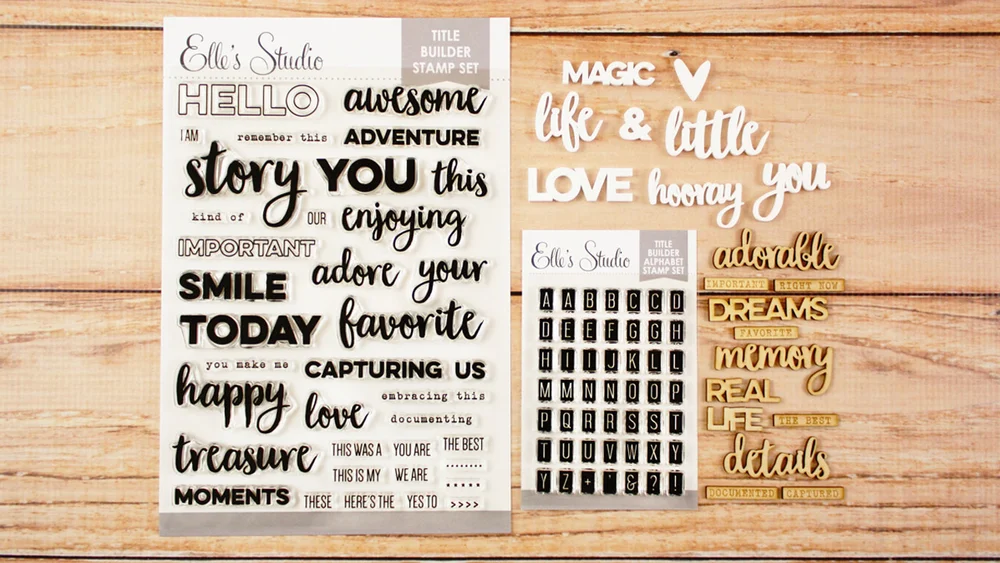 Elle's Studio
TITLE
BUILDER
STAMP SET
HELLO awesome
I AM remember this ADVENTURE
story YOU this
kind of OUR enjoying
IMPORTANT
adore your
SMILE
TODAY favorite
you make me CAPTURING US
happy love embracing this
documenting
treasure THIS WAS A YOU ARE THE BEST
........
THIS IS MY WE ARE .....
MOMENTS THESE HERE'S THE YES TO >>>>
MAGIC
life & little
LOVE hooray you
Elle's Studio
TITLE
BUILDER
ALPHABET
STAMP SET
A A B B C C D
D E E F G G H
H I I J K L L
M M N N O O P
P Q R R S S T
T U U V W X Y
Y Z + ' & ? !
adorable
IMPORTANT RIGHT NOW
DREAMS
FAVORITE
memory
REAL
LIFE THE BEST
details
DOCUMENTED CAPTURED